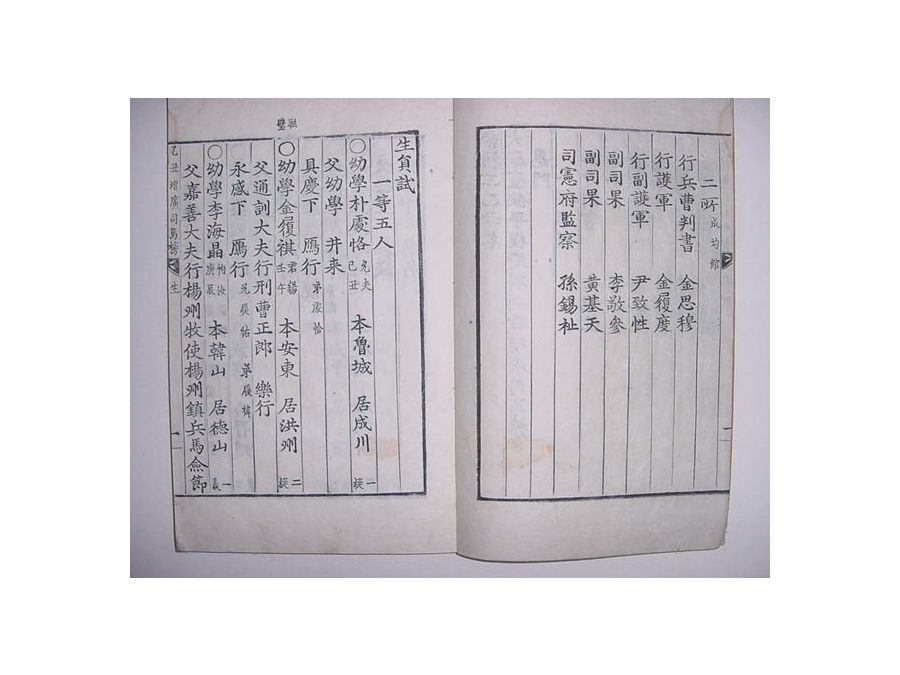 二所 成均館
行兵曹判書 金思穆
行護軍 金履度
行副護軍 尹致性
副司果 李敬參
副司果 黃基天
司憲府監察 孫錫祉
生員試
一等五人
〇幼學朴處恪 己丑 本魯城 居成川 一
父幼學 井來
具慶下 鴈行 弟處恰
〇幼學金履祺 君錫 壬午 本安東 居洪州 二
父通訓大夫行刑曹正郎 樂行
永感下 鴈行
〇幼學李海晶 庚辰 本韓山 居德山 一義
父嘉善大夫行楊州牧使楊州鎮兵馬僉節
乙丑增廣司馬榜 生 一